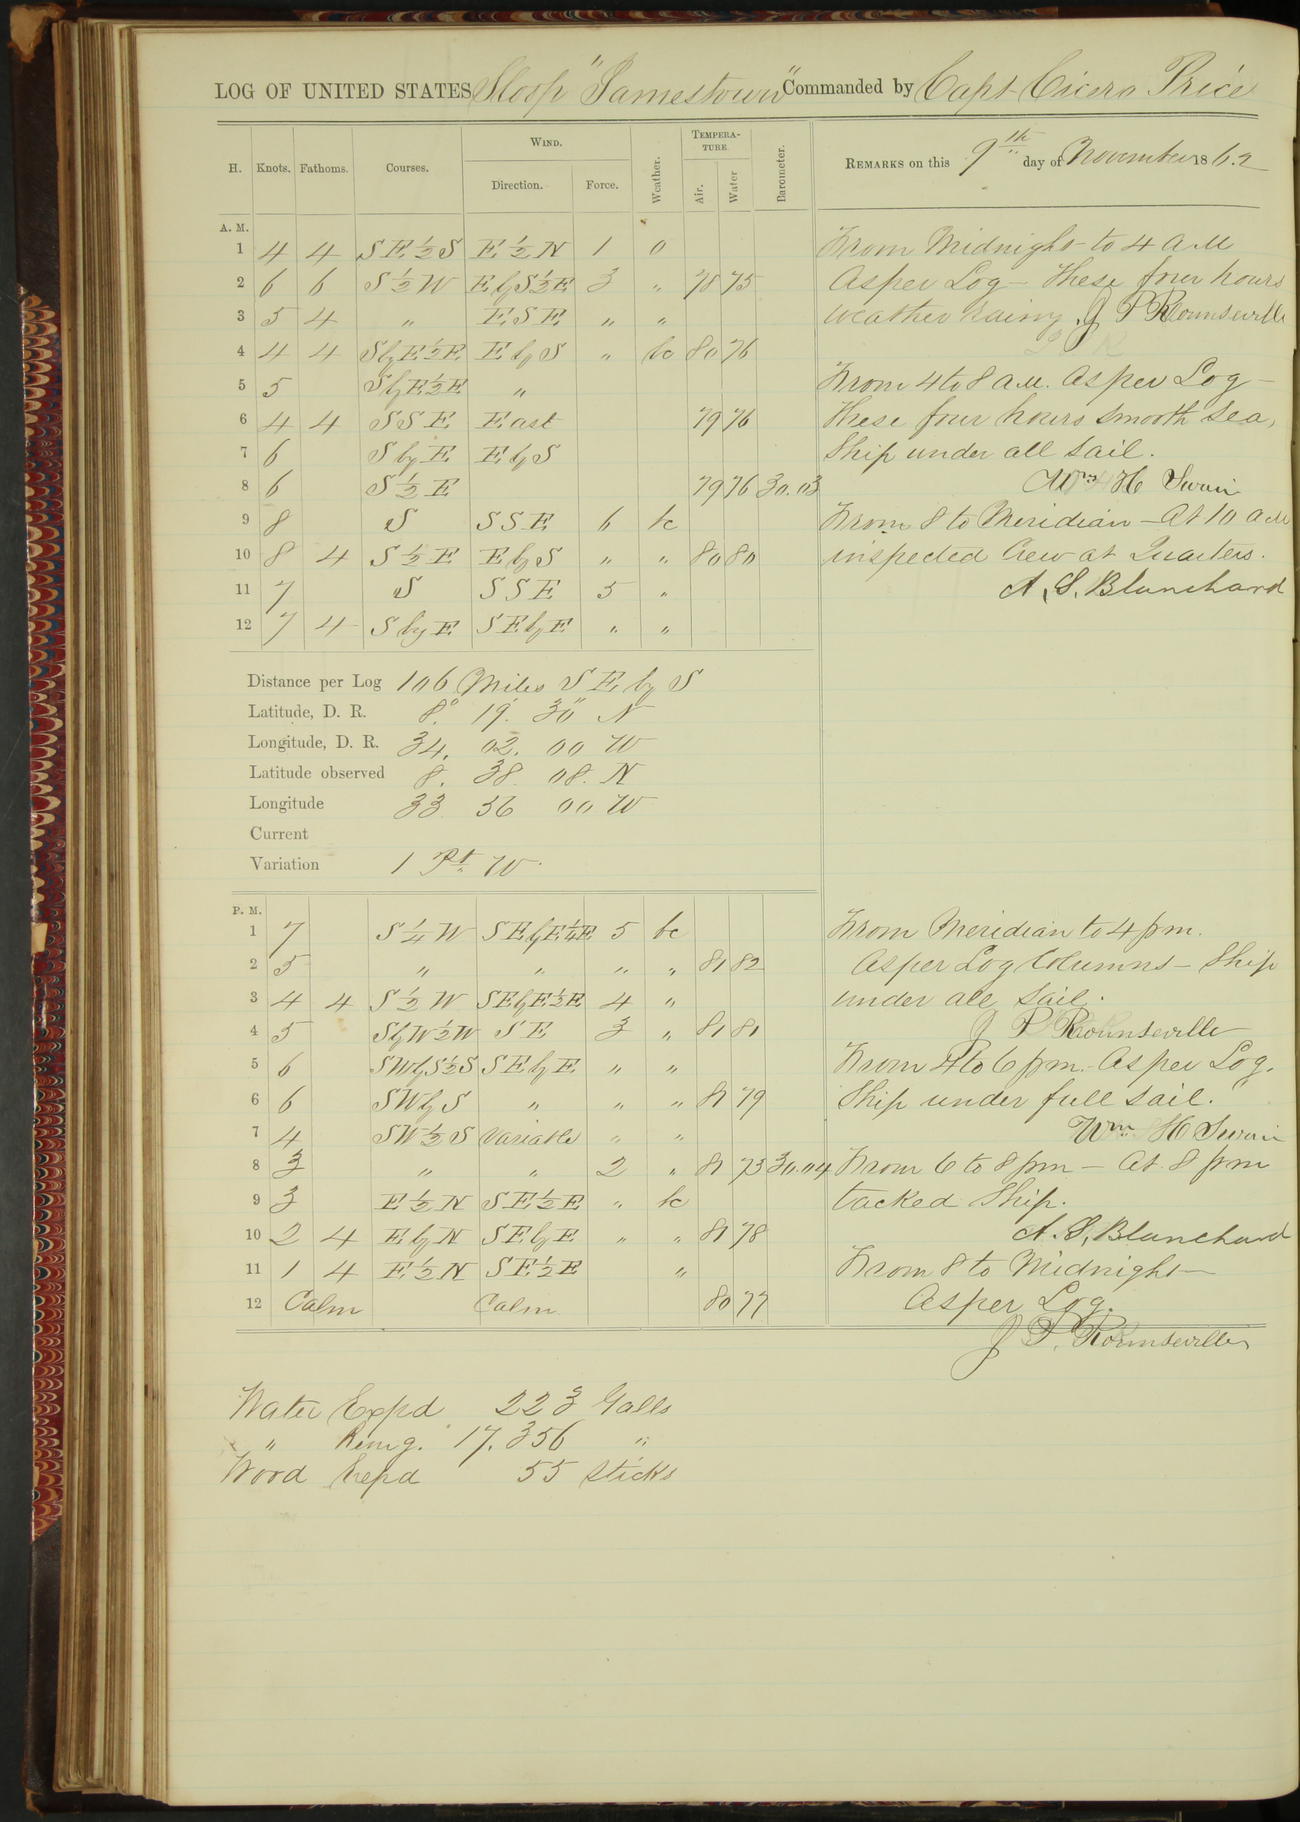 LOG OF UNITED STATES Sloop "Jamestown" Commanded by Capt Cicero Price
H. Knots. Fathoms. Courses. WIND. Direction. Force. Weather. TEMPERATURE. Air. Water Barometer. REMARKS on this 9th day of November 1862
A. M.
1 4 4 SE½S E½N 1 o From Midnight to 4 AM
2 6 6 S½W EbyS½E 3 " 78 75 Asper Log - These four hours
3 5 4 " ESE " " weather rainy. J P Rounseville
4 4 4 SbyE½E E by S " bc 80 76
5 5 SbyE½E " From 4 to 8 AM. Asper Log -
6 4 4 SSE East 79 76 These four hours smooth sea,
7 6 S by E E by S Ship under all sail.
8 6 S½E 79 76 30.03 Wm H Swain
9 8 S SSE 6 bc From 8 to Meridian - At 10 AM
10 8 4 S½E E by S " " 80 80 inspected Crew at Quarters.
11 7 S SSE 5 " A. S. Blanchard
12 7 4 S by E SE by E " "
Distance per Log 106 Miles SE by S
Latitude, D. R. 8° 19' 30" N
Longitude, D. R. 34. 02. 00 W
Latitude observed 8. 38 08. N
Longitude 33 56 00 W
Current
Variation 1 Pt. W.
P. M.
1 7 S¼W SEbyE¼E 5 bc From Meridian to 4 pm.
2 5 " " " " 81 82 Asper Log Columns - Ship
3 4 4 S½W SEbyE½E 4 " under all sail.
4 5 SbyW½W SE 3 " 81 81 J P Rounseville
5 6 SWbyS½S SE by E " " From 4 to 6 pm. - Asper Log.
6 6 SW by S " " " 81 79 Ship under full sail.
7 4 SW½S Variable " " Wm H Swain
8 3 " " 2 " 81 73 30.04 From 6 to 8 pm - At 8 pm
9 3 E½N SE½E " bc tacked Ship.
10 2 4 E by N SE by E " " 81 78 A. S. Blanchard
11 1 4 E½N SE½E " From 8 to Midnight -
12 Calm Calm 80 77 Asper Log.
J P. Rounseville
Water Expd 223 Galls
" Remg. 17,356 "
Wood Expd 55 sticks